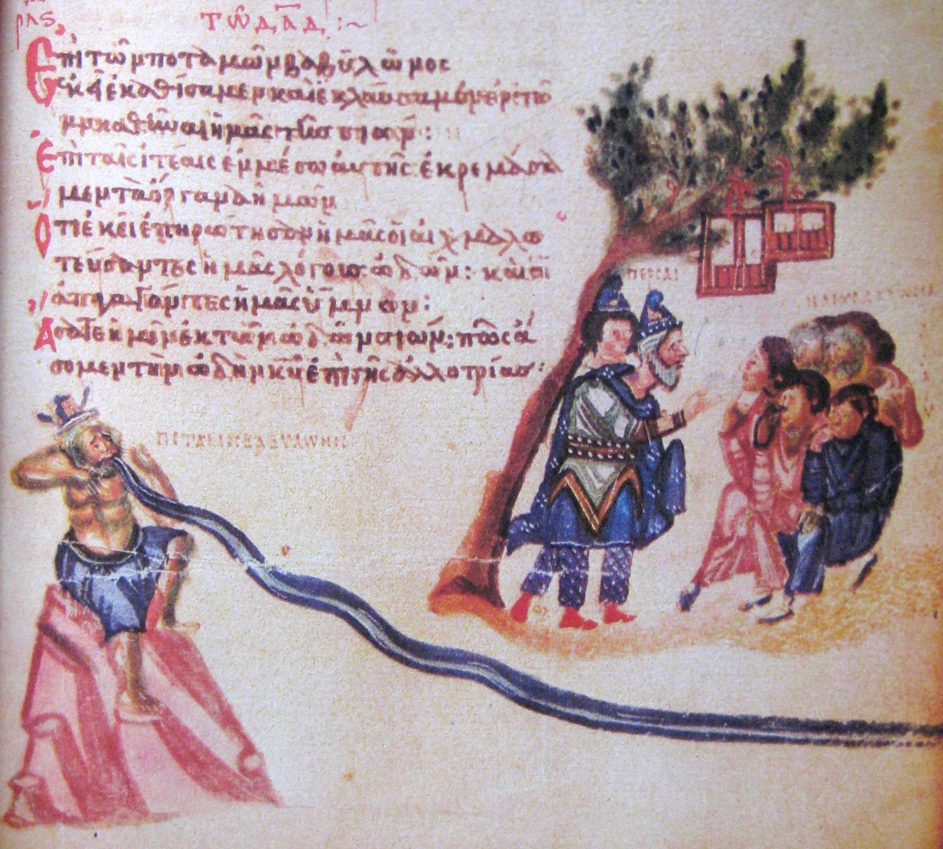 τῶ δᾱδ :~
Ἐπὶ τῶν ποταμῶν βαβυλῶνος
ἐκεῖ ἐκαθίσαμεν καὶ ἐκλαύσαμεν ἐν τῶ
μνησθῆναι ἡμᾶς τῆς σιών:
Ἐπὶ ταῖς ἰτέαις ἐν μέσω αὐτῆς ἐκρεμάσα
μεν τὰ ὄργανα ἡμῶν
Ὅτι ἐκεῖ ἐπηρώτησαν ἡμᾶς οἱ αἰχμαλω
τεύσαντες ἡμᾶς λόγους ὠδῶν: καὶ οἱ
ἀπαγαγόντες ἡμᾶς ὕμνον:
Ἄσατε ἡμῖν ἐκ τῶν ὠδῶν σιών: πῶς ἄ
σομεν τὴν ὠδὴν κυ ἐπὶ γῆς ἀλλοτρίας:
ΠΕΡΣΑΙ